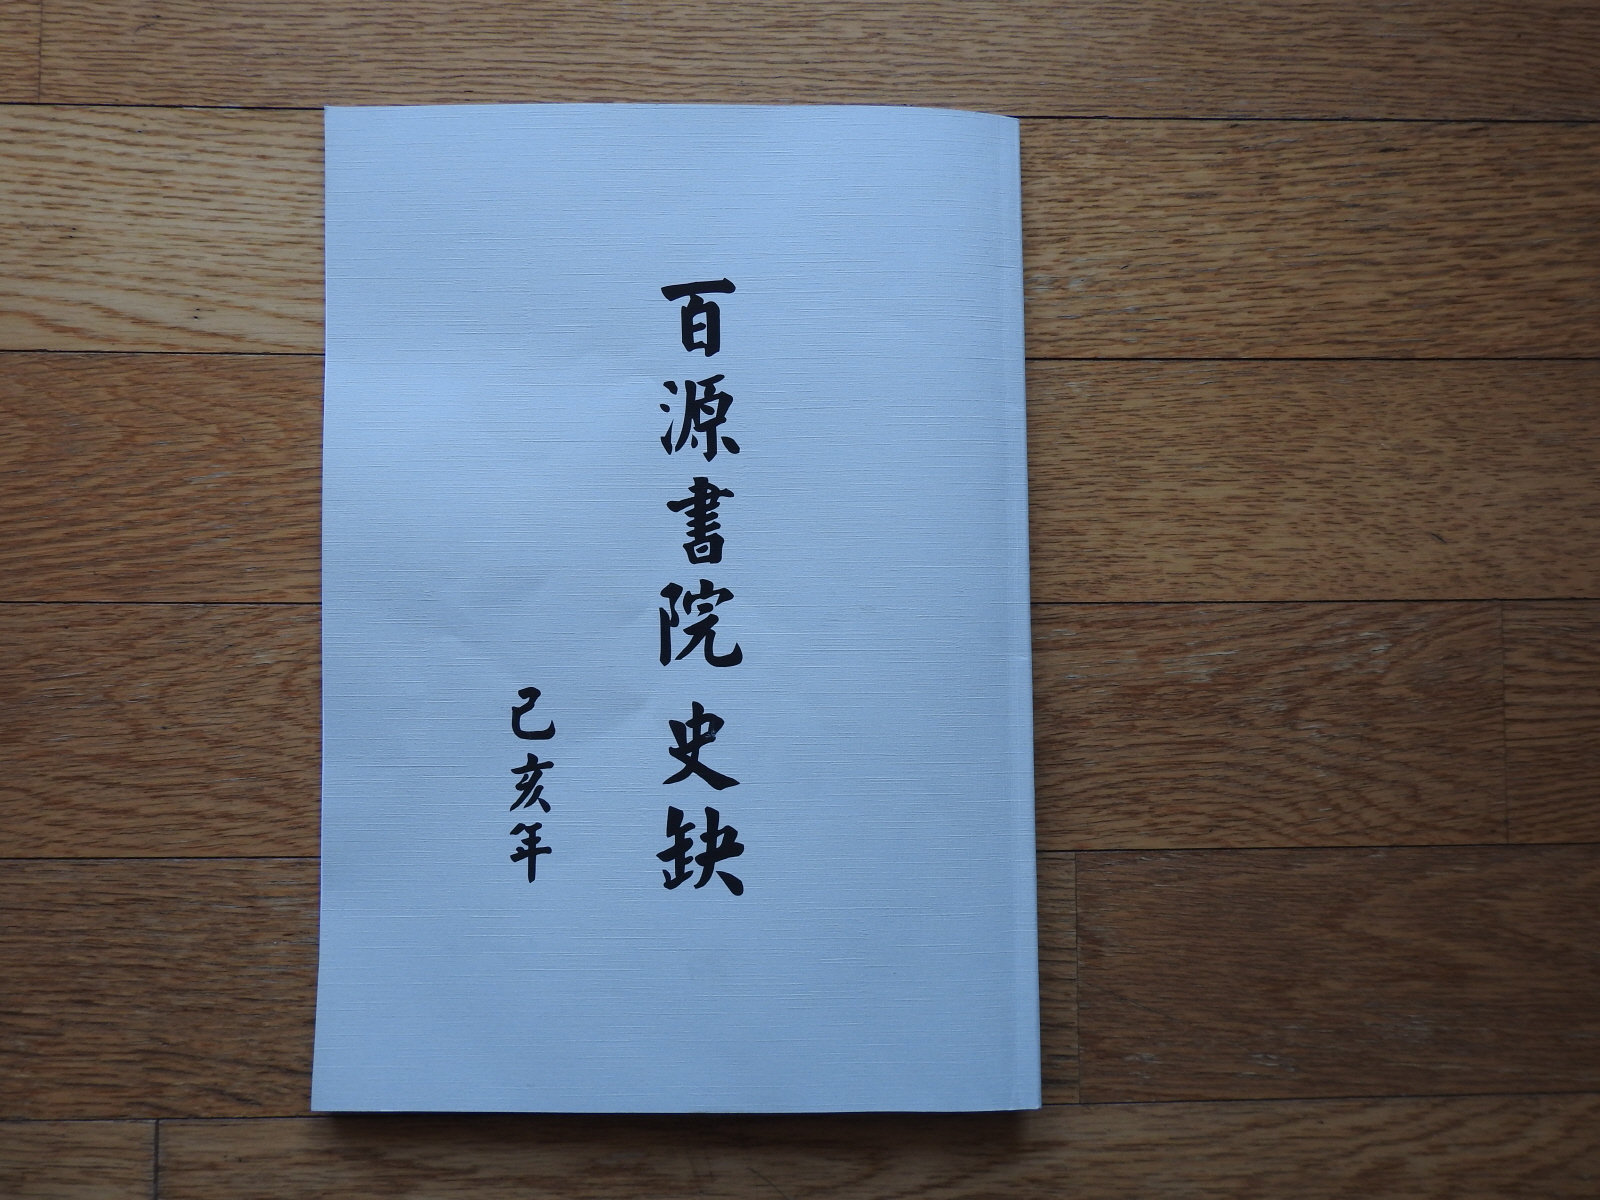 百源書院 史缺
己亥年